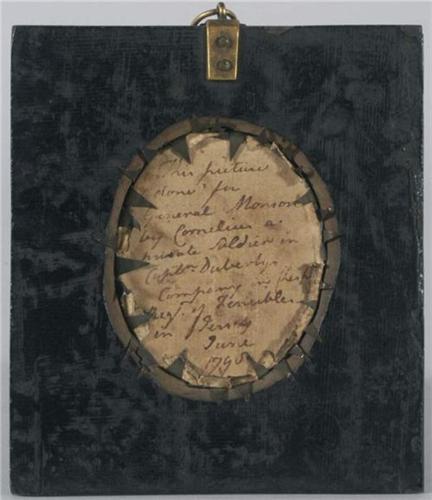 This picture
done for
General Monson
by Cornelius a
private Soldier in
Captn. Duberly's
Company in the
Regt. of Fencibles
in Jersey
June